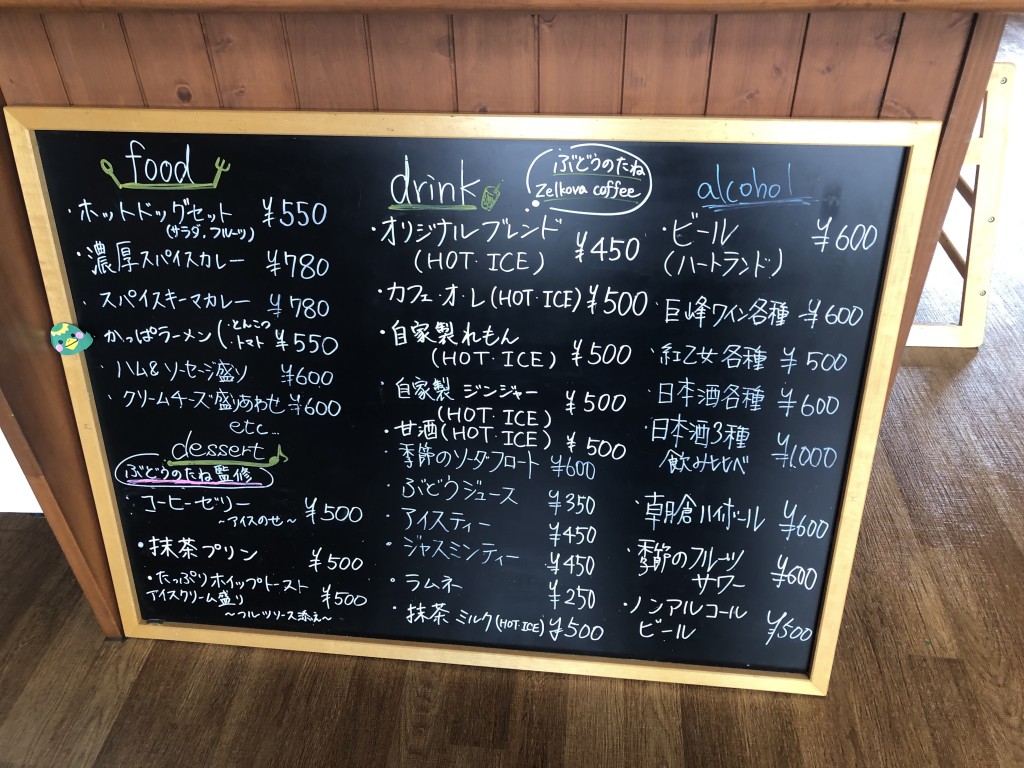 food
・ホットドッグセット ¥550
(サラダ、フルーツ)
・濃厚スパイスカレー ¥780
・スパイスキーマカレー ¥780
・かっぱラーメン(・とんこつ ・トマト ¥550
・ハム&ソーセージ盛り ¥600
・クリームチーズ盛りあわせ ¥600
etc...
dessert
ぶどうのたね監修
・コーヒーゼリー ¥500
～アイスのせ～
・抹茶プリン ¥500
・たっぷりホイップトースト
アイスクリーム盛り ¥500
～フルーツソース添え～
drink
ぶどうのたね
Zelkova coffee
・オリジナルブレンド
(HOT・ICE) ¥450
・カフェ・オ・レ(HOT・ICE) ¥500
・自家製れもん
(HOT・ICE) ¥500
・自家製ジンジャー
(HOT・ICE) ¥500
・甘酒(HOT・ICE) ¥500
・季節のソーダフロート ¥600
・ぶどうジュース ¥350
・アイスティー ¥450
・ジャスミンティー ¥450
・ラムネ ¥250
・抹茶ミルク(HOT・ICE) ¥500
alcohol
・ビール ¥600
(ハートランド)
・巨峰ワイン各種 ¥600
・紅乙女各種 ¥500
・日本酒各種 ¥600
・日本酒3種
飲み比べ ¥1,000
・朝倉ハイボール ¥600
・季節のフルーツ
サワー ¥600
・ノンアルコール
ビール ¥500